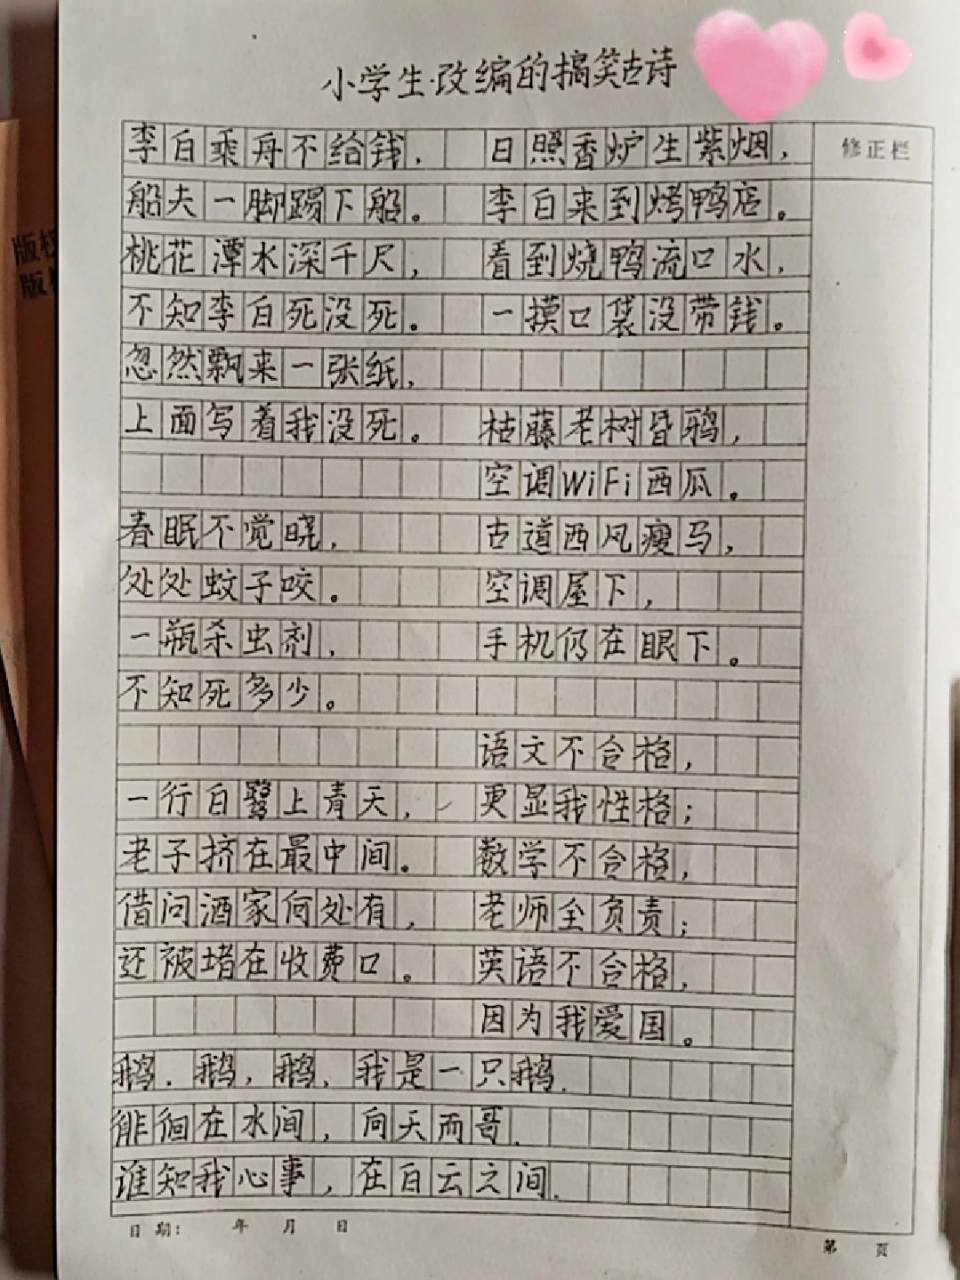 小学生改编的搞笑古诗
李白乘舟不给钱，
船夫一脚踢下船。
桃花潭水深千尺，
不知李白死没死。
忽然飘来一张纸，
上面写着我没死。
春眠不觉晓，
处处蚊子咬。
一瓶杀虫剂，
不知死多少。
一行白鹭上青天，
老子挤在最中间。
借问酒家何处有，
还被堵在收费口。
鹅．鹅，鹅，我是一只鹅．
徘徊在水间，向天而哥．
谁知我心事，在白云之间．
日照香炉生紫烟，
李白来到烤鸭店。
看到烧鸭流口水，
一摸口袋没带钱。
枯藤老树昏鸦，
空调WiFi西瓜。
古道西风瘦马，
空调屋下，
手机仍在眼下。
语文不合格，
更显我性格；
数学不合格，
老师全负责；
英语不合格，
因为我爱国。
修正栏
版权
版
日期： 年 月 日
第 页